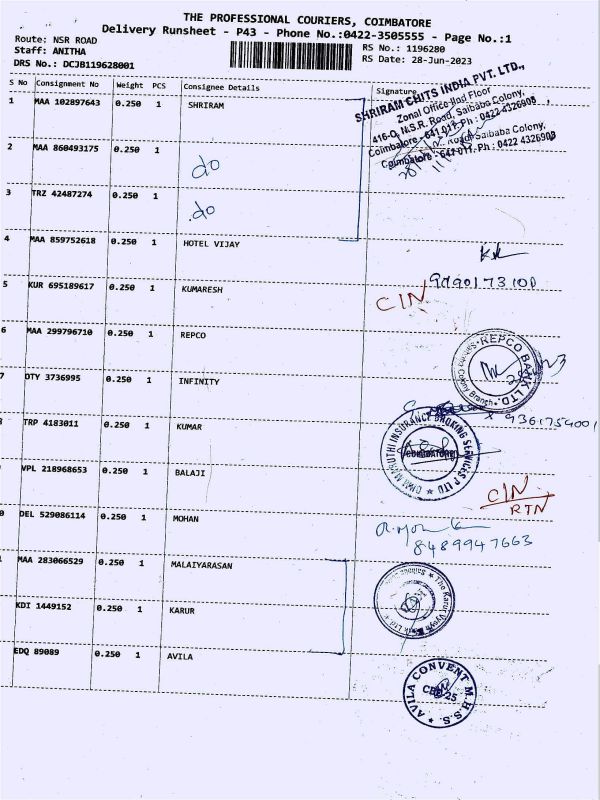 THE PROFESSIONAL COURIERS, COIMBATORE
Delivery Runsheet - P43 - Phone No.:0422-3505555 - Page No.:1
Route: NSR ROAD
Staff: ANITHA
DRS No.: DCJB119628001
RS No.: 1196280
RS Date: 28-Jun-2023
S No Consignment No Weight PCS Consignee Details Signature
1 MAA 102897643 0.250 1 SHRIRAM
SHRIRAM CHITS INDIA PVT. LTD.,
Zonal Office IInd Floor
416-O, N.S.R. Road, Saibaba Colony,
Coimbatore - 641 011. Ph : 0422-4326908
Road, Saibaba Colony,
Coimbatore - 641 011. Ph : 0422 4326908
2 MAA 860493175 0.250 1 do
3 TRZ 42487274 0.250 1 do
4 MAA 859752618 0.250 1 HOTEL VIJAY
9790173100
5 KUR 695189617 0.250 1 KUMARESH CIN
6 MAA 299796710 0.250 1 REPCO
REPCO BANK LTD.
7 DTY 3736995 0.250 1 INFINITY
9361754001
TRP 4183011 0.250 1 KUMAR
INSURANCE BROKING SERVICES P LTD
COIMBATORE
VPL 218968653 0.250 1 BALAJI CIN
RTN
0 DEL 529086114 0.250 1 MOHAN
8489947663
MAA 283066529 0.250 1 MALAIYARASAN
KDI 1449152 0.250 1 KARUR
The Karur Vysya
EDQ 89089 0.250 1 AVILA
AVILA CONVENT M.H.S.S.
CBE-25